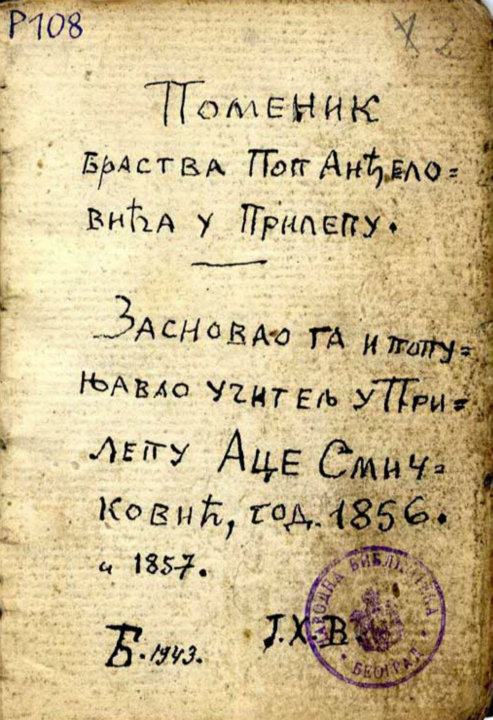 Р108
Поменик
Братства Поп Анђело=
вића у Прилепу.
Засновао га и попу=
њавао учитељ у При=
лепу Аце Смич=
ковић, год. 1856.
и 1857.
Б. 1943.
Ј.Х.В.
НАРОДНА БИБЛИОТЕКА
БЕОГРАД